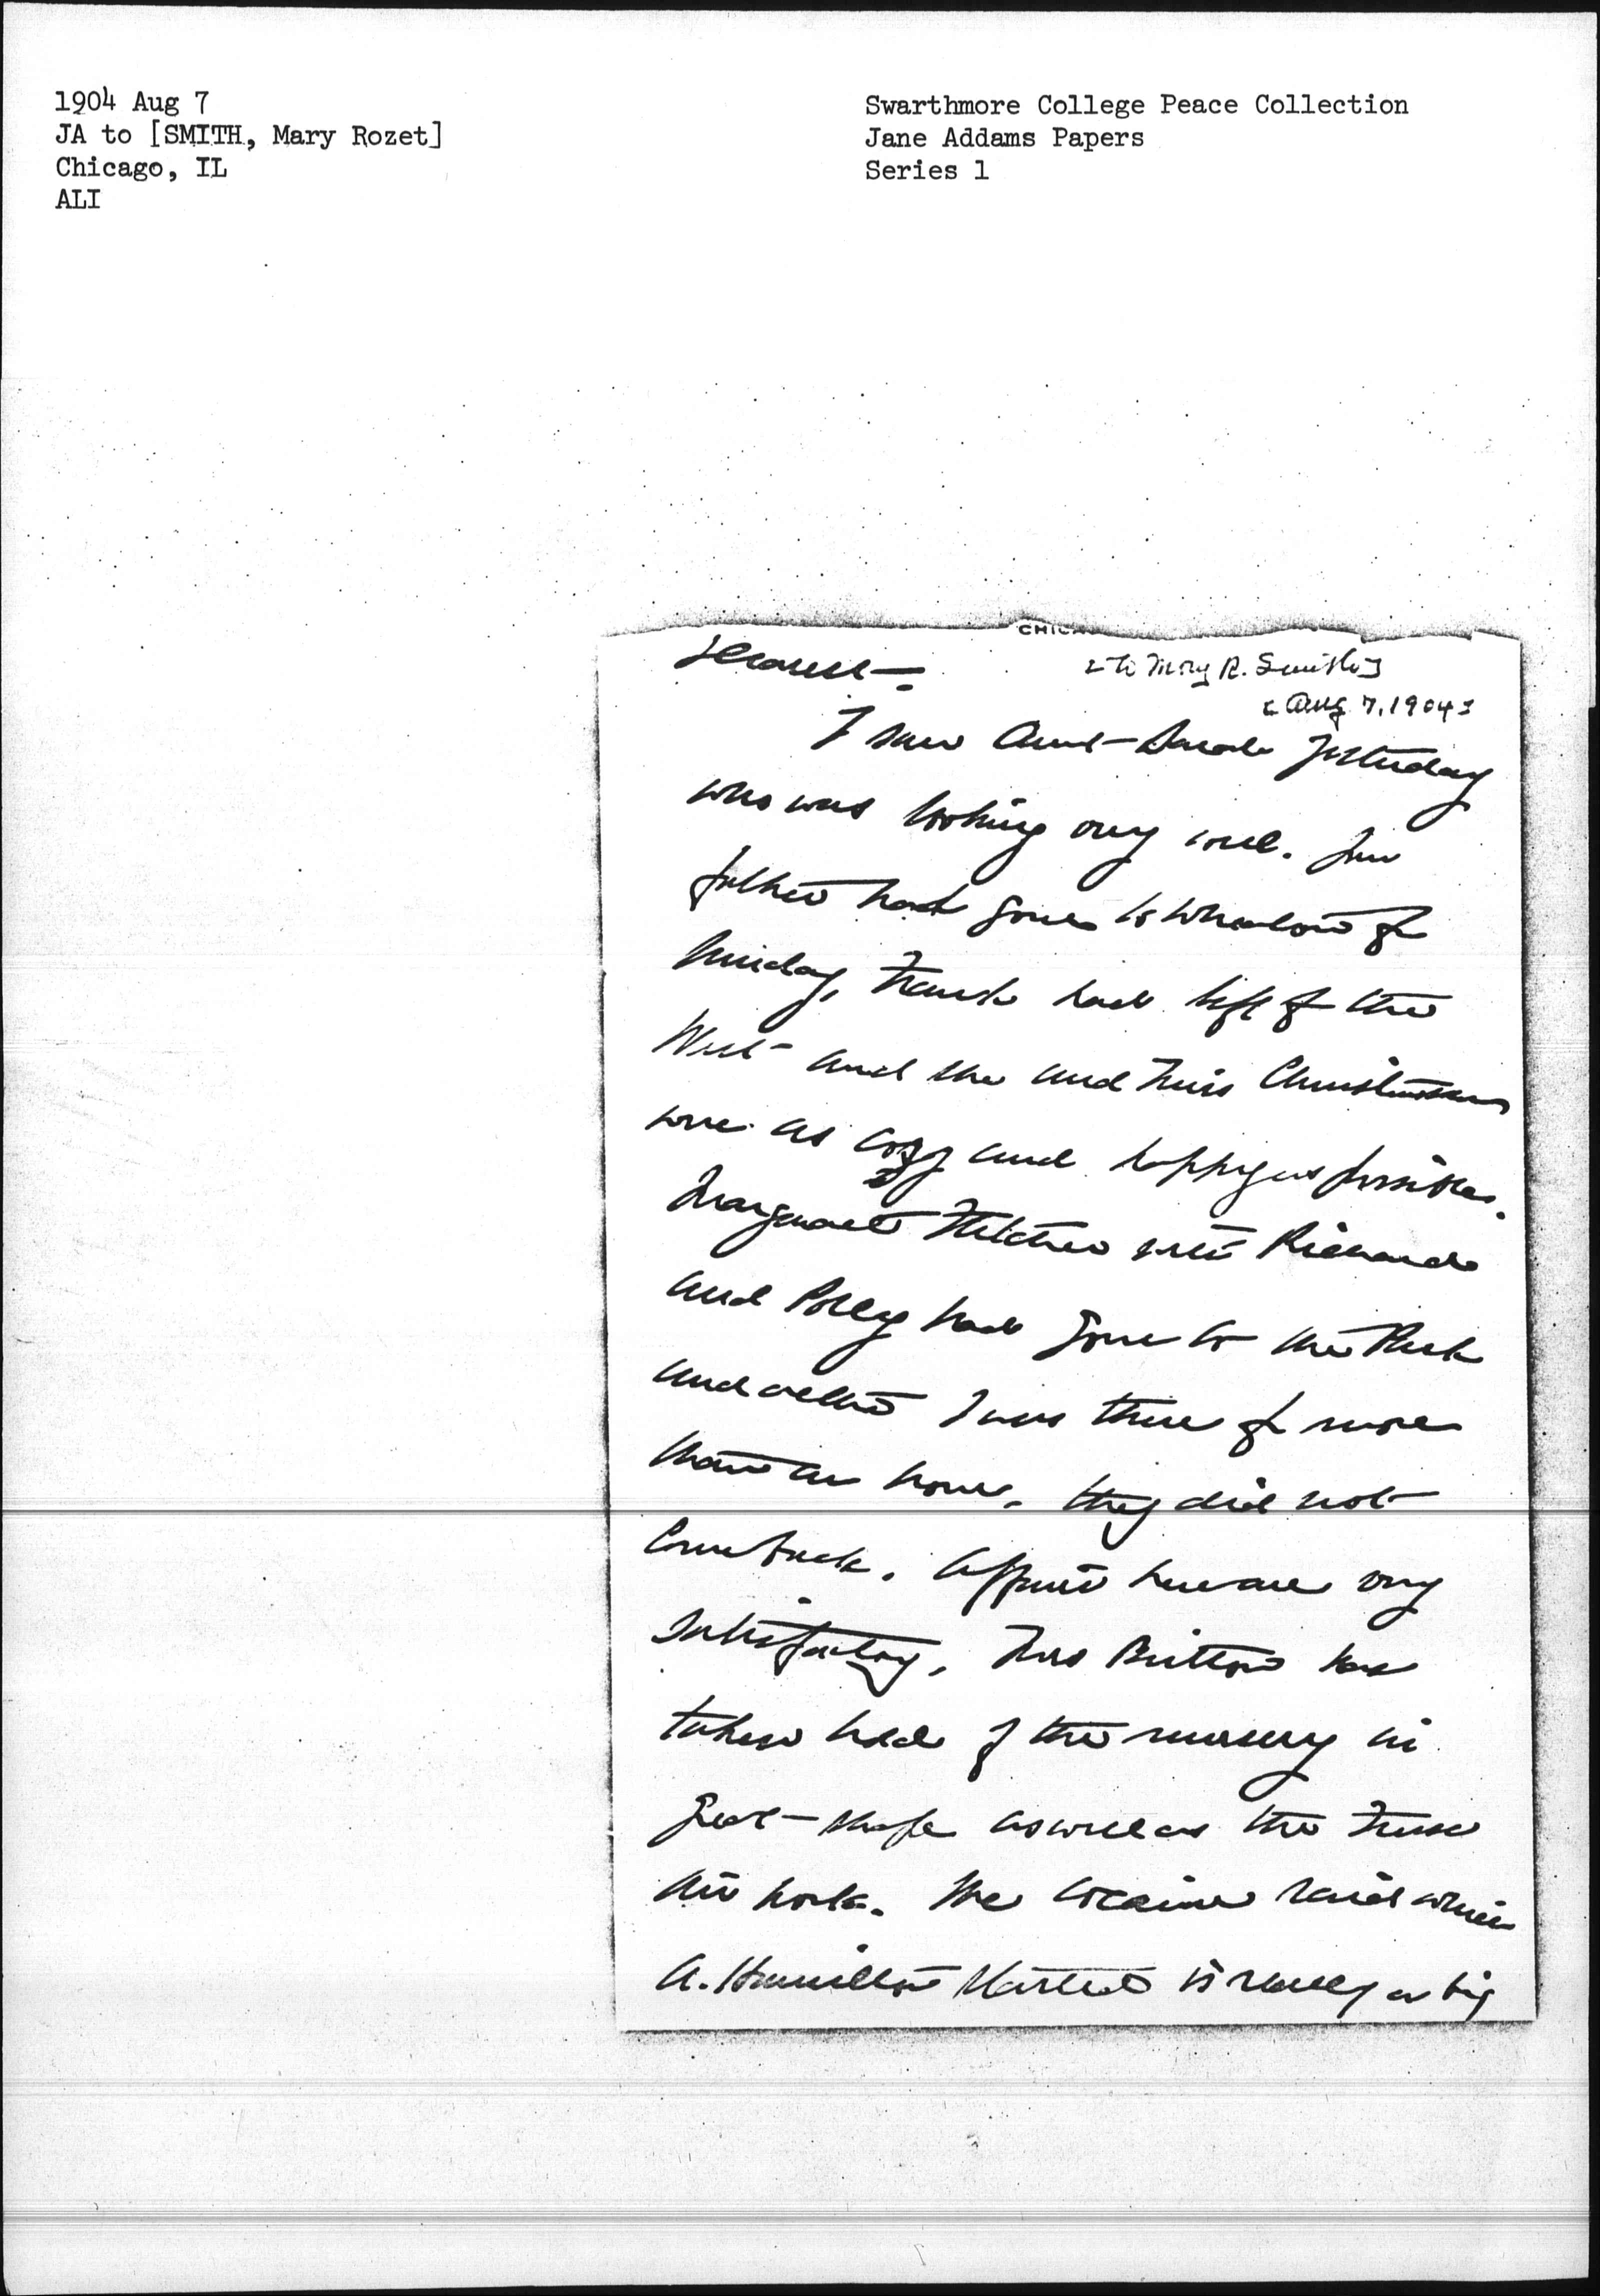 1904 Aug 7
JA to [SMITH, Mary Rozet]
Chicago, IL
ALI
Swarthmore College Peace Collection
Jane Addams Papers
Series 1
CHICA
Dearest —
[to Mary R. Smith]
[Aug 7, 1904]
I saw Aunt Sarah yesterday
who was looking very well. Your
father had gone to Wheaton for
Sunday, Frank had left for the
West and she and Miss Christensen
were as cozy and happy as possible.
Margaret Fletcher with Richard
and Polly had gone to the Park
and altho I was there for more
than an hour, they did not
come back. Affairs here are very
satisfactory, Mrs Britton has
taken hold of the nursery in
great shape as well as the Fresh
Air work. The cocaine raid which
A. Hamilton started is really a big